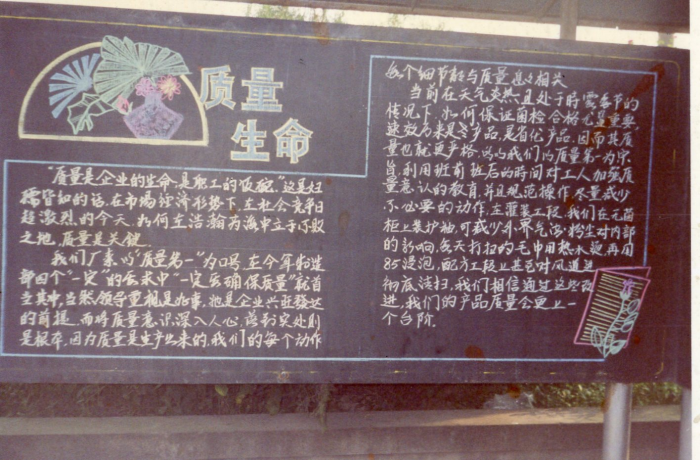 质量
生命
"质量是企业的生命,是职工的饭碗"这是妇
孺皆知的话,在市场经济形势下,在社会竞争日
趋激烈的今天,如何在浩瀚的海中立于不败
之地,质量是关键。
我们厂素以"质量第一"为口号,在今年
部四个"一定"的要求中"一定要确保质量"就首
当其冲,当然领导重视是好事,也是企业兴旺发达
的前提,而将质量意识深入人心,落到实处则
是根本,因为质量是生产出来的,我们的每个动作
每个细节都与质量息息相关
当前在天气炎热且处于时雷季节的
情况下,如何保证菌检合格尤是重要,
速效 是 产品,是省优产品,因而其质
量也就更严格, 我们 质量第一为宗
旨,利用班前班后的时间对工人加强质
量意识的教育,并且规范操作,尽量减少
不必要的动作,在灌装工段,我们在无菌
柜上装护袖,可减少外界气流,粉尘对内部
的影响,每天打扫的毛巾用热水烫再用
85浸泡,配方工段上 对风道进
彻底清扫,我们相信通过这些改
进,我们的产品质量会更上一
个台阶。